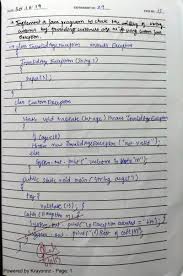 * Implement a java program to check the validity of voting
customer by providing customer's age as i/p using custom Java
Exception.
class InvalidAgeException extends Exception
{
InvalidAgeException (String s)
{
super(s);
}
}
class Custom Exception
{
static void validate (int age) throws InvalidAgeException
{
if (age<18)
throw new InvalidAgeException ("not valid");
else
System.out.println ("welcome to vote");
}
public static void main (String args[])
{
try {
validate (13);
}
catch (Exception m)
{
System.out.println ("Exception occured" +m);
}
System.out.println ("Rest of code");
}
Powered by Kraynnnz - Page: 1